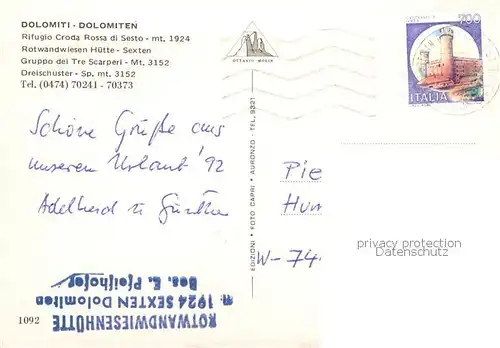 DOLOMITI - DOLOMITEN
Rifugio Croda Rossa di Sesto - mt. 1924
Rotwandwiesen Hütte - Sexten
Gruppo dei Tre Scarperi - Mt. 3152
Dreischuster - Sp. mt. 3152
Tel. (0474) 70241 - 70373
OTTAVIO MAGIA
700
ITALIA
Schöne Grüße aus
unserem Urlaub '92
Adelheid u Günther
EDIZIONI • FOTO CAPRI • AURONZO - TEL. 9321
Pie
Hum
W-74
privacy protection
Datenschutz
ROTWANDWIESENHÜTTE
m. 1924 SEXTEN Dolomiten
Bes. E. Pfeifhofer
1092